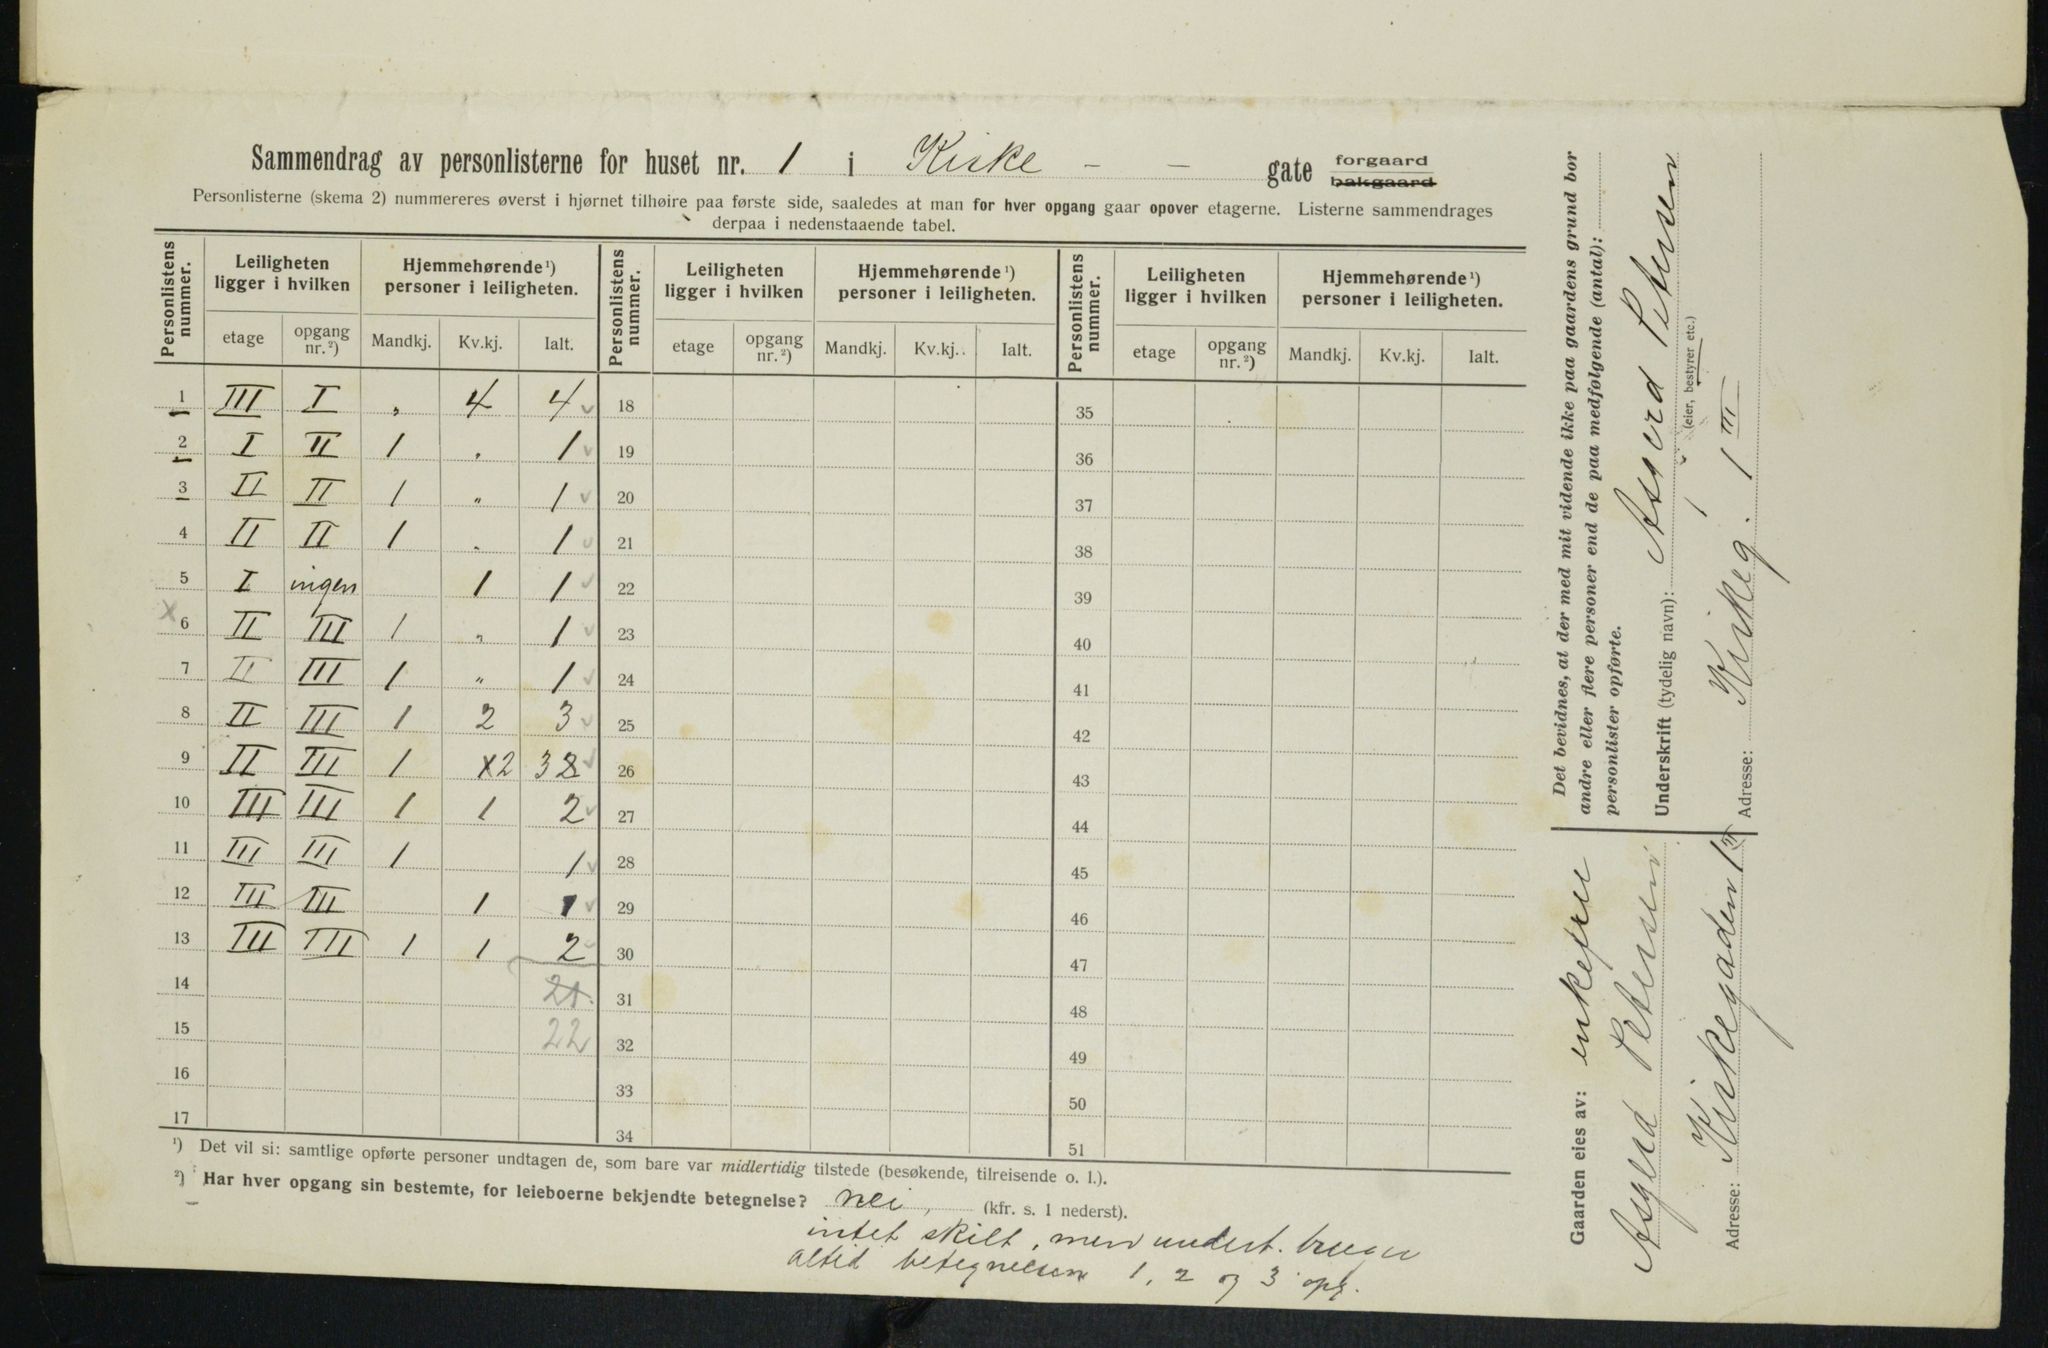 Sammendrag av personlisterne for huset nr. 1 i Kirke - - gate forgaard bakgaard
Personlisterne (skema 2) nummereres øverst i hjørnet tilhøire paa første side, saaledes at man for hver opgang gaar opover etagerne. Listerne sammendrages
derpaa i nedenstaaende tabel.
Personlistens nummer. Leiligheten ligger i hvilken Hjemmehørende ¹) personer i leiligheten. Personlistens nummer. Leiligheten ligger i hvilken Hjemmehørende ¹) personer i leiligheten. Personlistens nummer. Leiligheten ligger i hvilken Hjemmehørende ¹) personer i leiligheten.
etage opgang nr. ²) Mandkj. Kv.kj. Ialt. etage opgang nr. ²) Mandkj. Kv.kj. Ialt. etage opgang nr. ²) Mandkj. Kv.kj. Ialt.
1 III I " 4 4 18 35
2 I II 1 " 1 19 36
3 II II 1 " 1 20 37
4 II II 1 " 1 21 38
5 I ingen 1 1 22 39
x 6 II III 1 " 1 23 40
7 II III 1 " 1 24 41
8 II III 1 2 3 25 42
9 II III 1 x2 3 2 26 43
10 III III 1 1 2 27 44
11 III III 1 1 28 45
12 III III 1 1 29 46
13 III III 1 1 2 30 47
14 21. 31 48
15 22 32 49
16 33 50
17 34 51
¹) Det vil si: samtlige opførte personer undtagen de, som bare var midlertidig tilstede (besøkende, tilreisende o. l.).
²) Har hver opgang sin bestemte, for leieboerne bekjendte betegnelse? nei, (kfr. s. 1 nederst).
intet skilt, men undert. bruger
altid betegnelsen 1, 2 og 3 opg.
Det bevidnes, at der med mit vidende ikke paa gaardens grund bor
andre eller flere personer end de paa medfølgende (antal):
personlister opførte.
Underskrift (tydelig navn): Petersen
(eier, bestyrer etc.)
Adresse: Kirkeg. 1 III
Gaarden eies av: enkefru
Petersen
Adresse: Kirkegaden 1 III